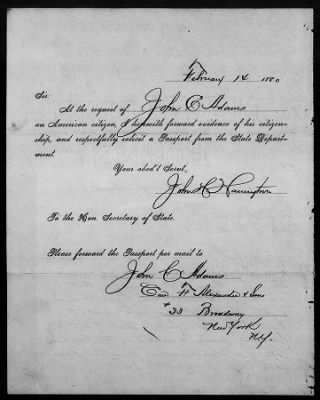 February 14 1880
Sir:
At the request of John C Adams
an American citizen, I herewith forward evidence of his citizen-
ship, and respectfully solicit a Passport from the State Depart-
ment.
Your obed't Servt,
John H Harrington
To the Hon Secretary of State.
Please forward the Passport per mail to
John C Adams
Care F Alexander & Sons
33 Broadway
New York
N.Y.